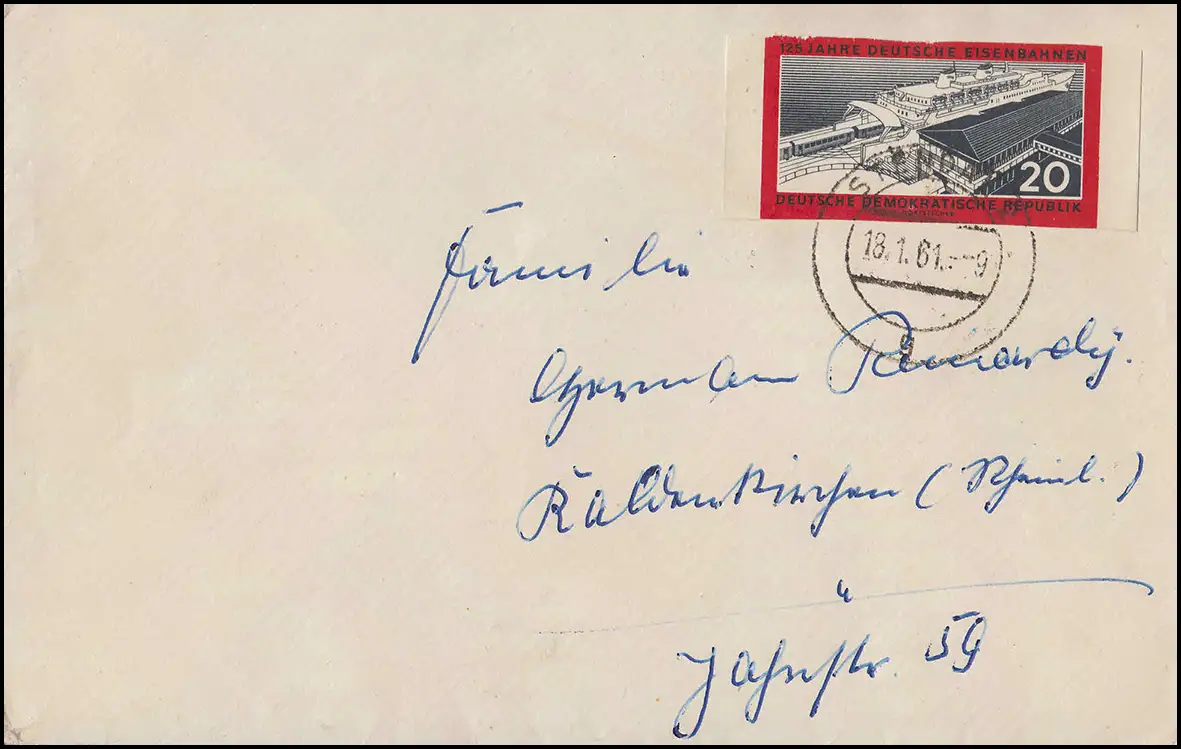 125 JAHRE DEUTSCHE EISENBAHNEN
20
DEUTSCHE DEMOKRATISCHE REPUBLIK
18.1.61.--9
Familie
Hermann
Kaldenkirchen (Rheinl.)
Jahnstr. 59